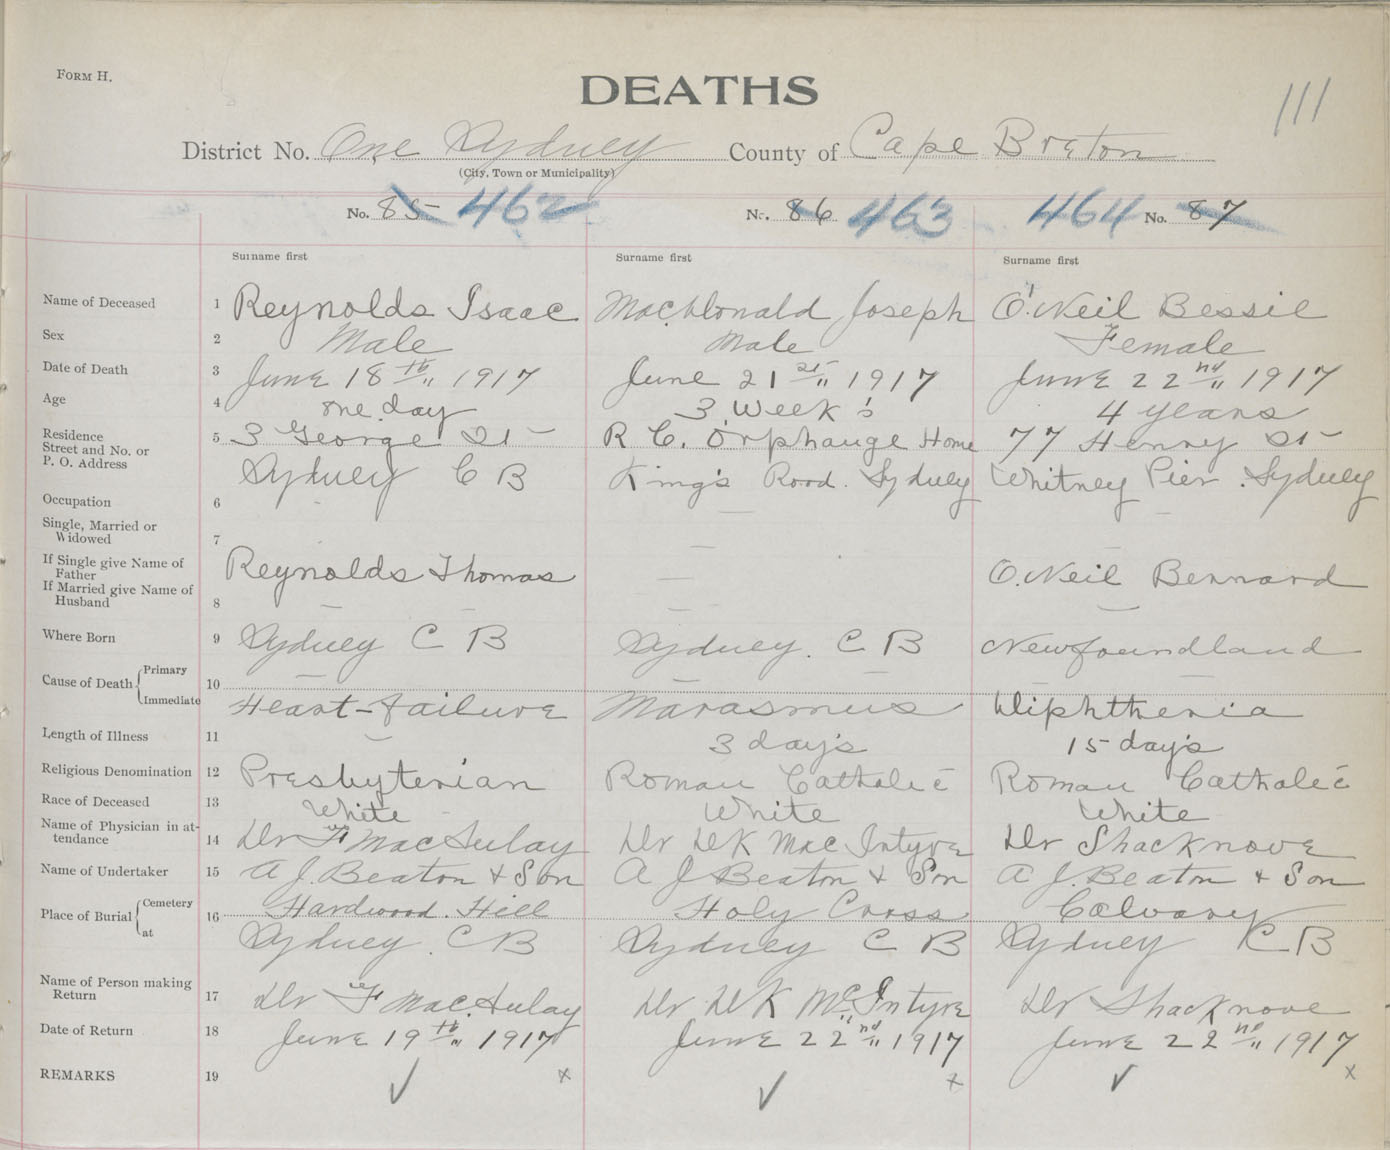 FORM H.
DEATHS
111
District No. One Sydney County of Cape Breton
(City, Town or Municipality)
No. 85 462 No. 86 463 464 No. 87
Surname first Surname first Surname first
Name of Deceased 1 Reynolds Isaac MacDonald Joseph O'Neil Bessie
Sex 2 Male Male Female
Date of Death 3 June 18th 1917 June 21st 1917 June 22nd 1917
Age 4 one day 3 week's 4 years
Residence 5 3 George St R C. Orphauge Home 77 Henry St
Street and No. or
P. O. Address Sydney C B King's Road. Sydney Whitney Pier. Sydney
Occupation 6 —
Single, Married or
Widowed 7 —
If Single give Name of
Father Reynolds Thomas — O.Neil Bernard
If Married give Name of
Husband 8 — — — —
Where Born 9 Sydney C B Sydney. C B Newfoundland
Cause of Death Primary 10 — — —
Immediate Heart-failure Marasmus Diphtheria
Length of Illness 11 — 3 day's 15 day's
Religious Denomination 12 Presbyterian Roman Catholic Roman Catholic
Race of Deceased 13 White White White
Name of Physician in at-
tendance 14 Dr F MacAulay Dr DK MacIntyre Dr Shacknove
Name of Undertaker 15 A J. Beaton & Son A J Beaton & Son A J. Beaton & Son
Place of Burial Cemetery 16 Hardwood. Hill Holy Cross Calvary
at Sydney. C B Sydney C B Sydney C B
Name of Person making
Return 17 Dr F MacAulay Dr. DK McIntyre Dr Shacknove
Date of Return 18 June 19th 1917 June 22nd 1917 June 22nd 1917
REMARKS 19 ✓ x ✓ x ✓ x